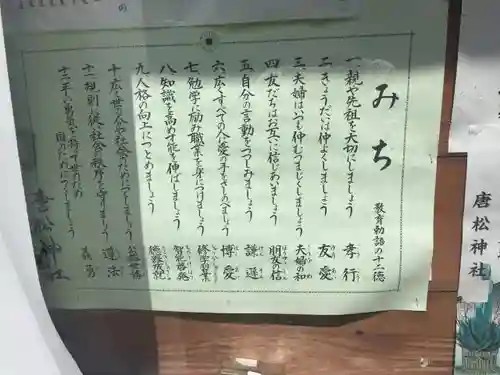 みち
教育勅語の十二徳
一、親や先祖を大切にしましょう 孝行
二、きょうだいは仲よくしましょう 友愛
三、夫婦はいつも仲むつまじくしましょう 夫婦の和
四、友だちはお互いに信じあいましょう 朋友の信
五、自分の言動をつつしみましょう 謙遜
六、広くすべての人に愛の手をさしのべましょう 博愛
七、勉学に励み職業を身につけましょう 修学習業
八、知識を高め才能を伸ばしましょう 智能啓発
九、人格の向上につとめましょう 徳器成就
十、広く世の人々や社会のためにつくしましょう 公益世務
十一、規則に従い社会の秩序を守りましょう 遵法
十二、正しい勇気を持って世のため国のためにつくしましょう 義勇
唐松神社
唐松神社